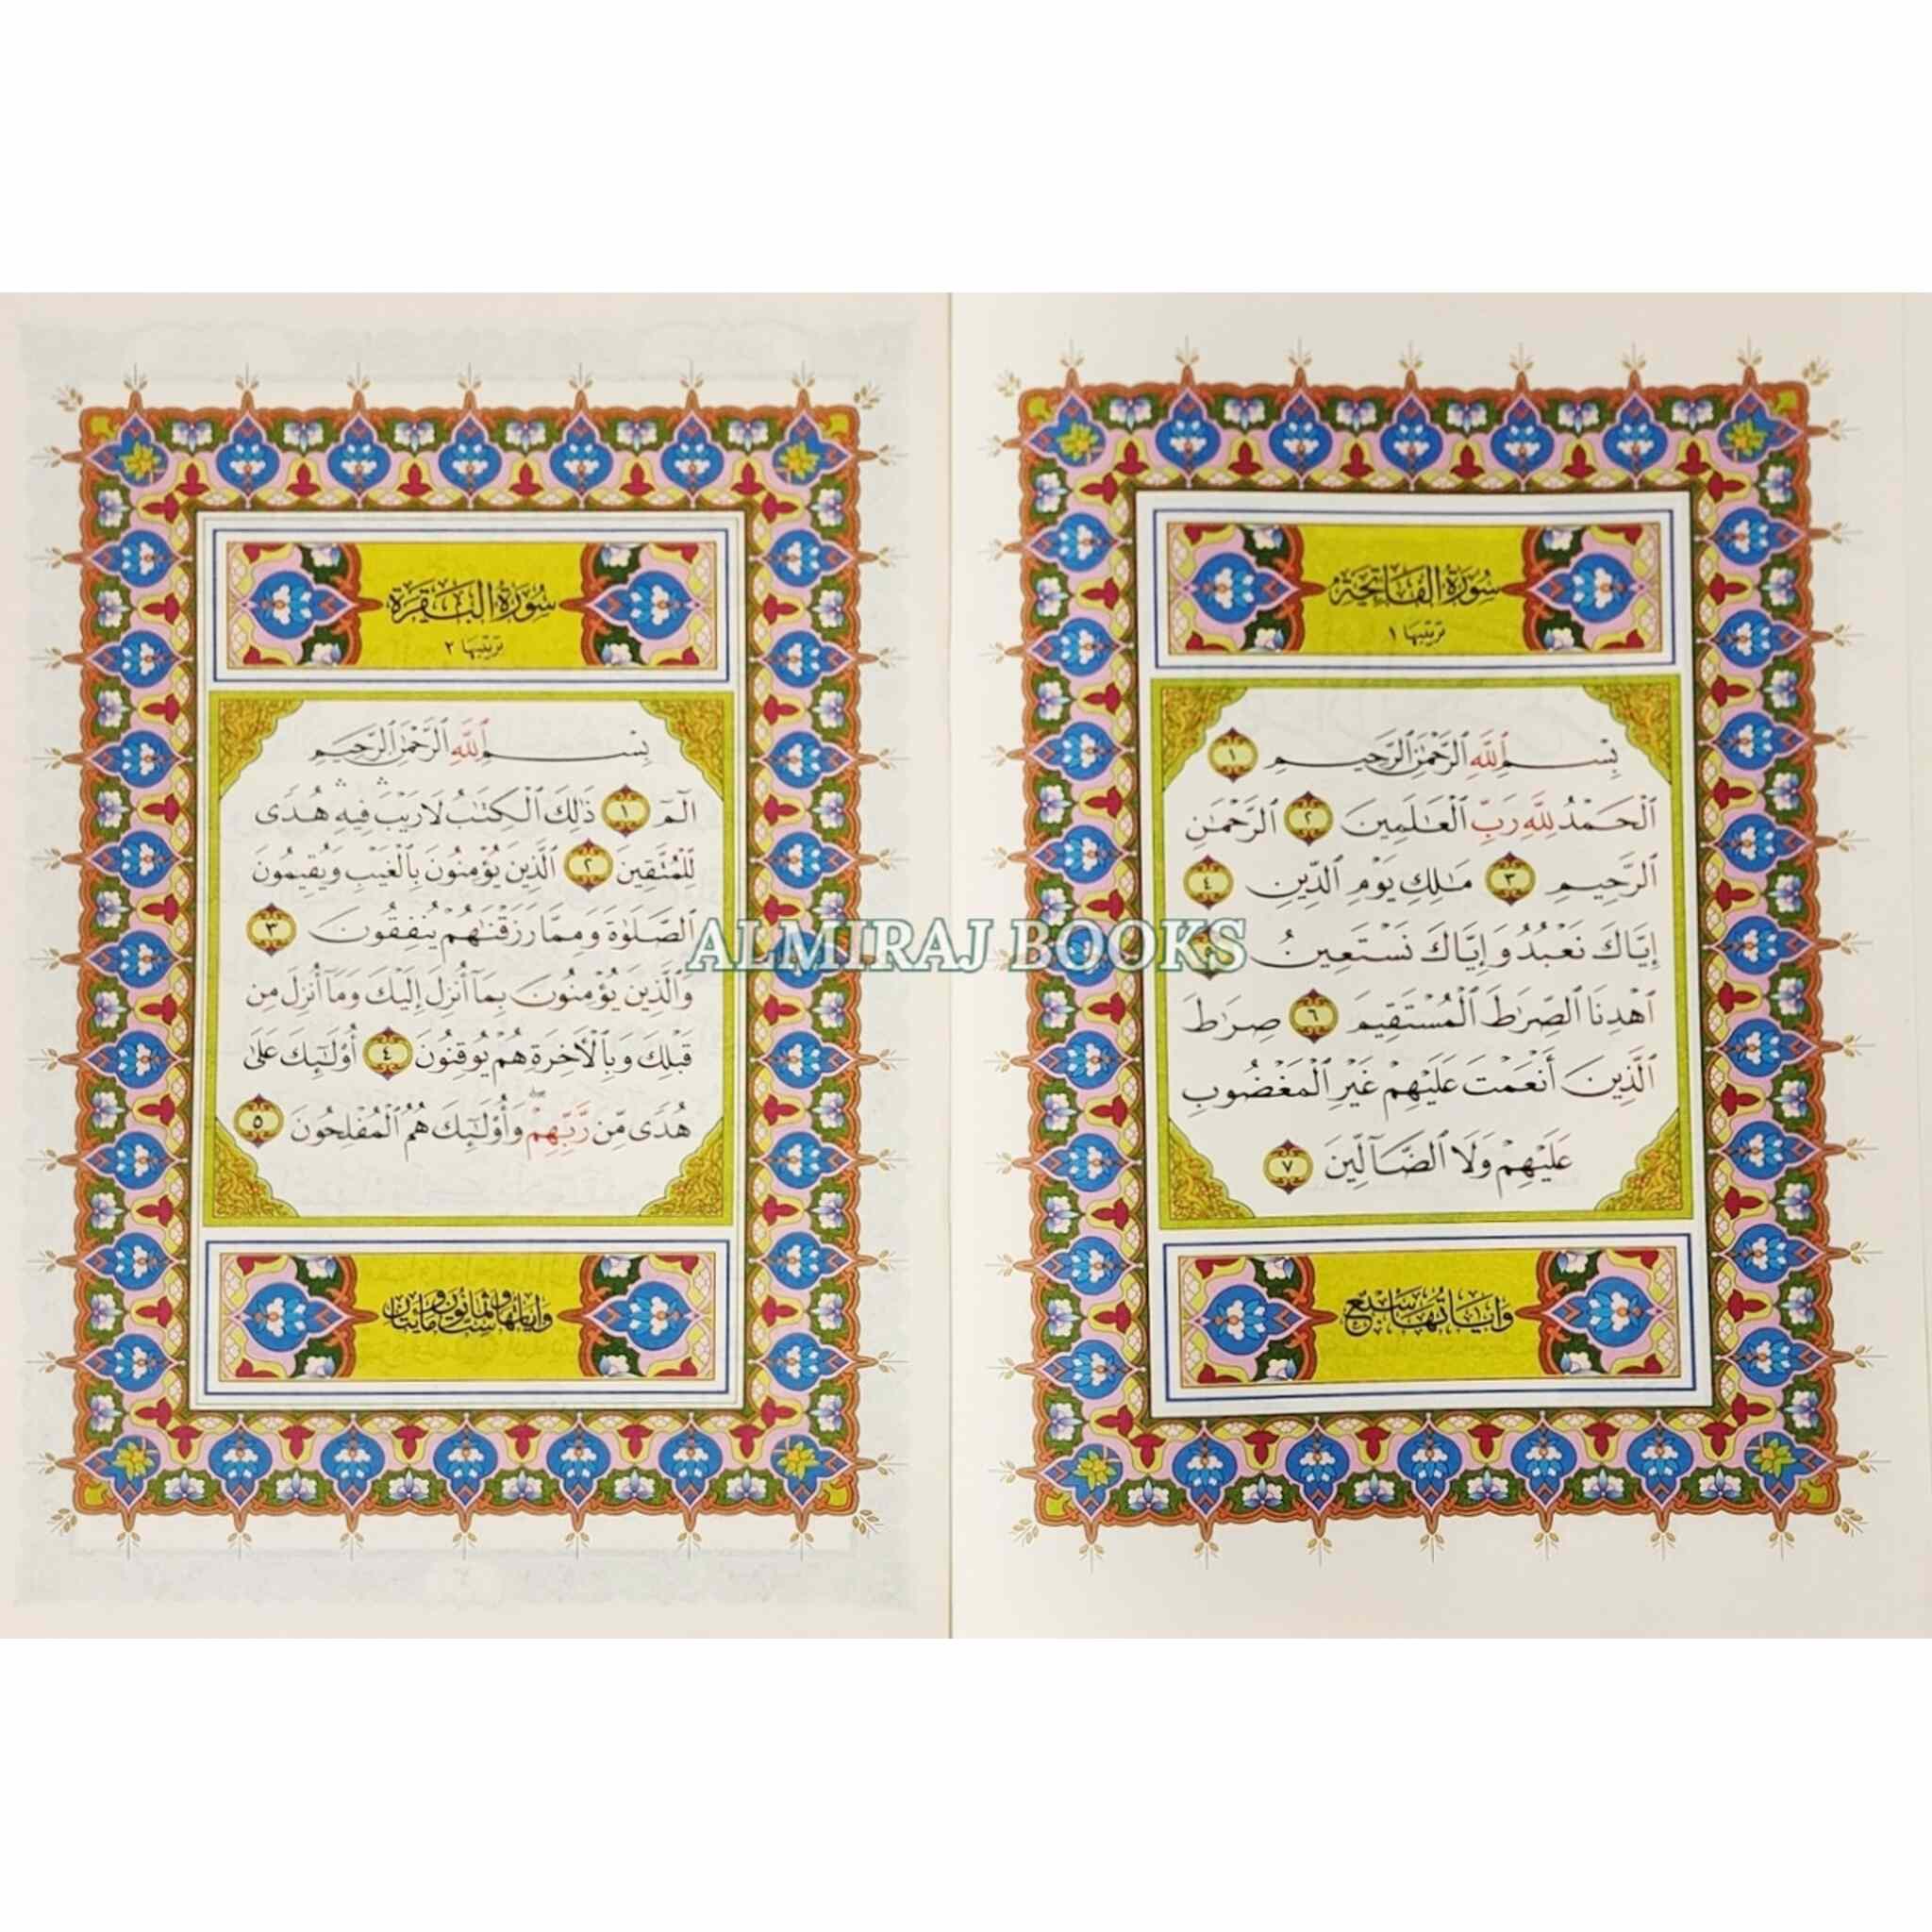 سُورَةُ الفَاتِحَةِ
ترتيبها ١
بِسْمِ ٱللَّهِ ٱلرَّحْمَٰنِ ٱلرَّحِيمِ ١
ٱلْحَمْدُ لِلَّهِ رَبِّ ٱلْعَٰلَمِينَ ٢ ٱلرَّحْمَٰنِ
ٱلرَّحِيمِ ٣ مَٰلِكِ يَوْمِ ٱلدِّينِ ٤
إِيَّاكَ نَعْبُدُ وَإِيَّاكَ نَسْتَعِينُ ٥
ٱهْدِنَا ٱلصِّرَٰطَ ٱلْمُسْتَقِيمَ ٦ صِرَٰطَ
ٱلَّذِينَ أَنْعَمْتَ عَلَيْهِمْ غَيْرِ ٱلْمَغْضُوبِ
عَلَيْهِمْ وَلَا ٱلضَّآلِّينَ ٧
وَآيَاتُهَا سَبْعٌ
سُورَةُ البَقَرَةِ
ترتيبها ٢
بِسْمِ ٱللَّهِ ٱلرَّحْمَٰنِ ٱلرَّحِيمِ
الٓمٓ ١ ذَٰلِكَ ٱلْكِتَٰبُ لَا رَيْبَ ۛ فِيهِ ۛ هُدًى
لِّلْمُتَّقِينَ ٢ ٱلَّذِينَ يُؤْمِنُونَ بِٱلْغَيْبِ وَيُقِيمُونَ
ٱلصَّلَوٰةَ وَمِمَّا رَزَقْنَٰهُمْ يُنفِقُونَ ٣
وَٱلَّذِينَ يُؤْمِنُونَ بِمَآ أُنزِلَ إِلَيْكَ وَمَآ أُنزِلَ مِن
قَبْلِكَ وَبِٱلْأَخِرَةِ هُمْ يُوقِنُونَ ٤ أُو۟لَٰٓئِكَ عَلَىٰ
هُدًى مِّن رَّبِّهِمْ ۖ وَأُو۟لَٰٓئِكَ هُمُ ٱلْمُفْلِحُونَ ٥
وآياتها ست وثمانون ومائتان
ALMIRAJ BOOKS